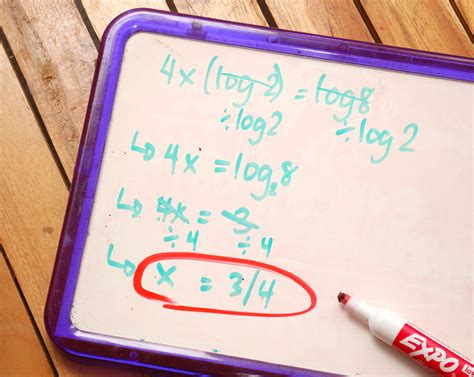 4x (log 2) = log8
÷log2 ÷log2
↳ 4x = log₂8
↳ 4x = 3
÷4 ÷4
↳ x = 3/4
EXPO